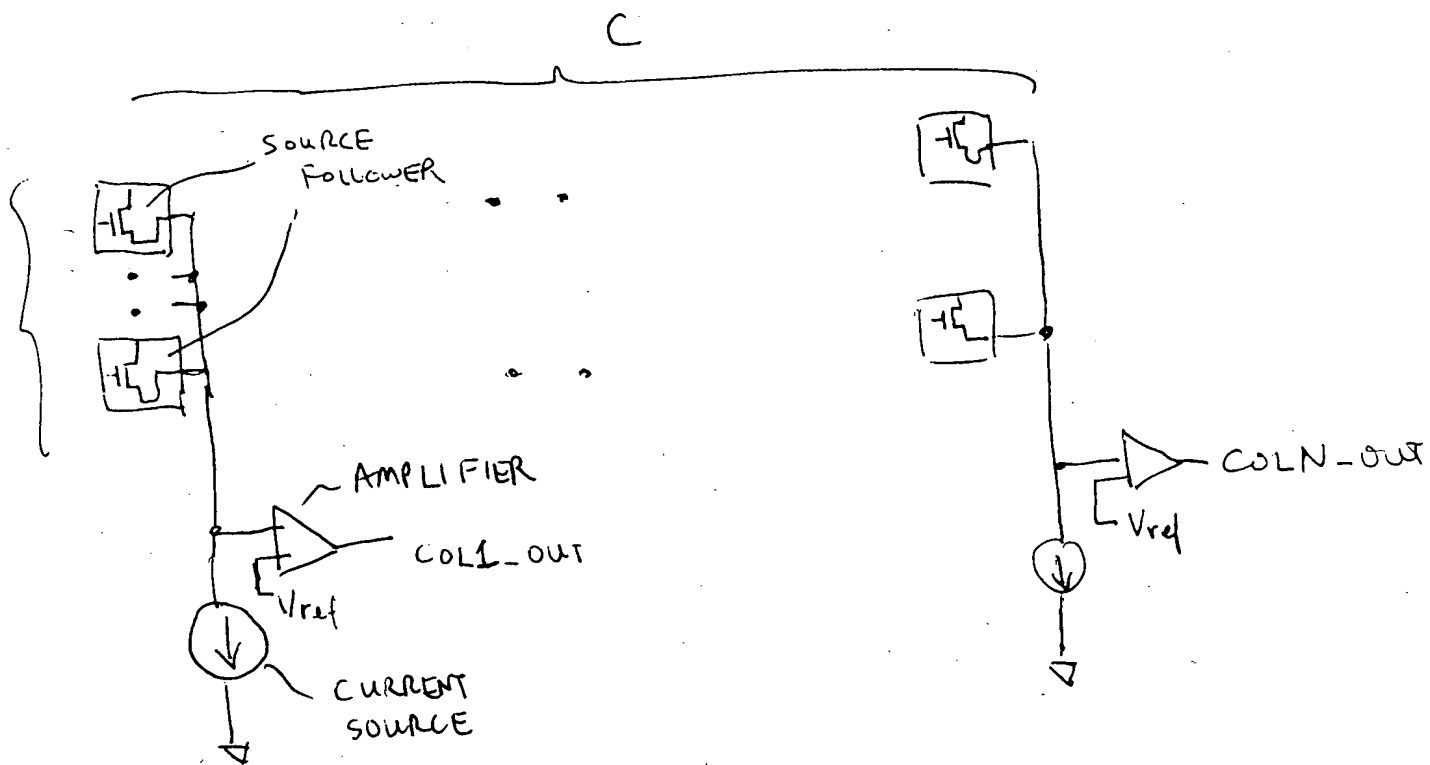 C
SOURCE
FOLLOWER
AMPLIFIER
COL1_OUT
Vref
CURRENT
SOURCE
COLN_OUT
Vref